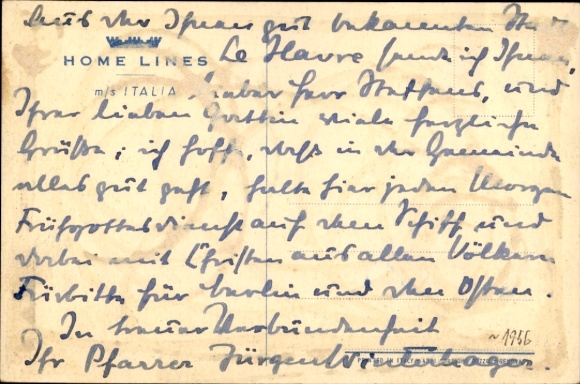 Aus der Ihnen gut bekannten Stadt
HOME LINES
Le Havre sende ich Ihnen,
m/s ITALIA
lieber Herr Steffens, und
Ihrer lieben Gattin viele herzliche
Grüße; ich hoffe, daß in der Gemeinde
alles gut geht, halte hier jeden Morgen
Frühgottesdienst auf dem Schiff und
dabei mit Christen aus allen Völkern
Fürbitte für Berlin und den Osten.
In treuer Verbundenheit
~1956
Ihr Pfarrer Jürgen Winterhager.